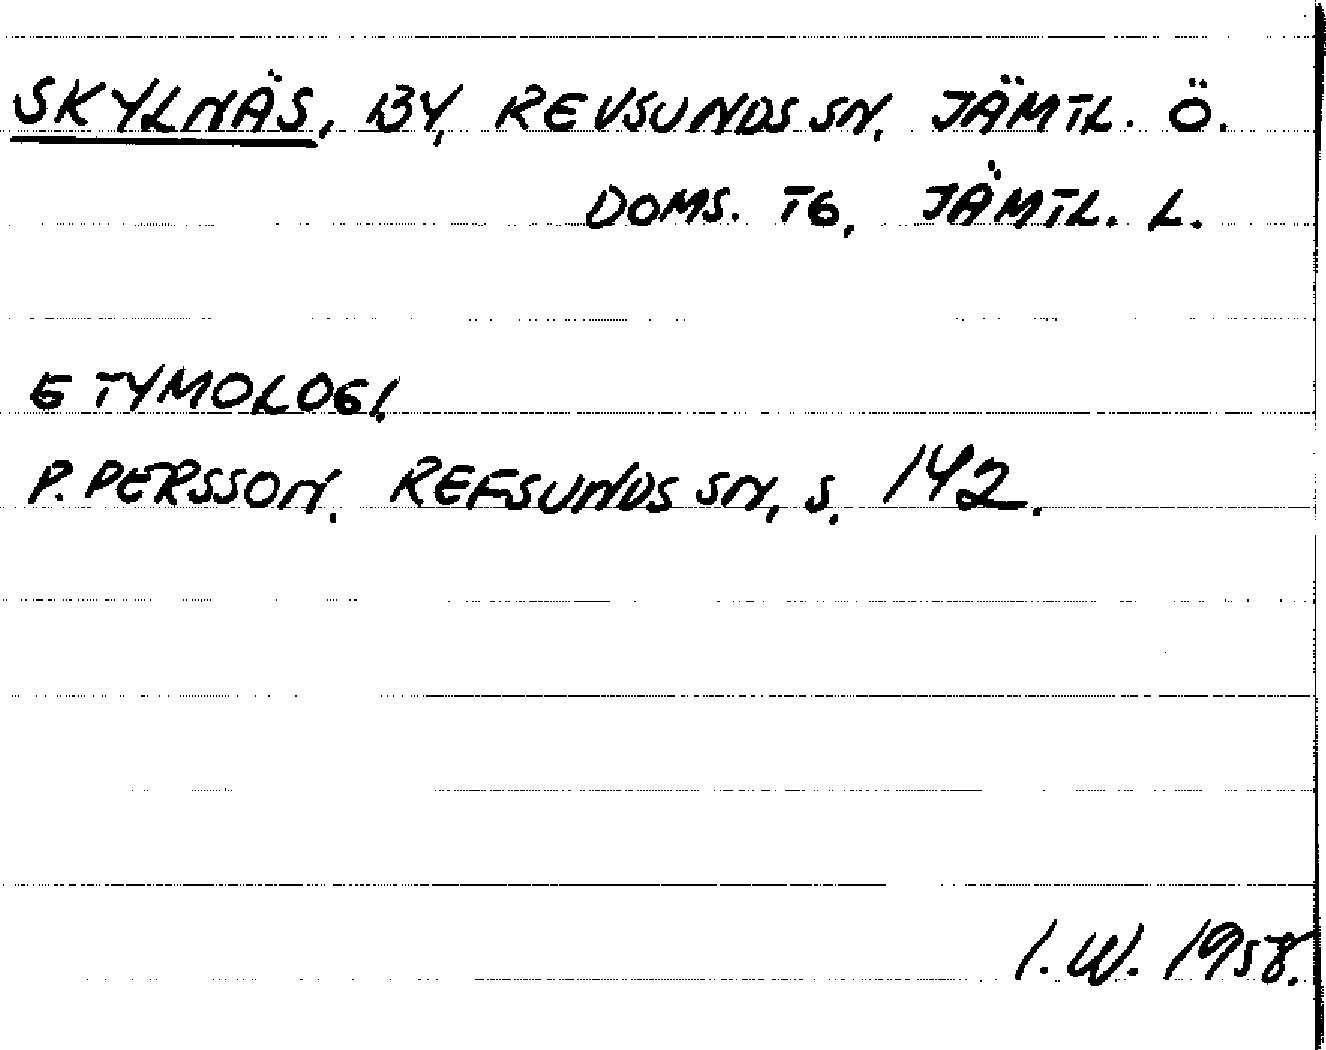 SKYLNÄS, BY, REVSUNDS SN, JÄMTL. Ö.
DOMS. TG, JÄMTL. L.
ETYMOLOGI.
P. PERSSON, REFSUNDS SN, S. 142.
I. W. 1958.